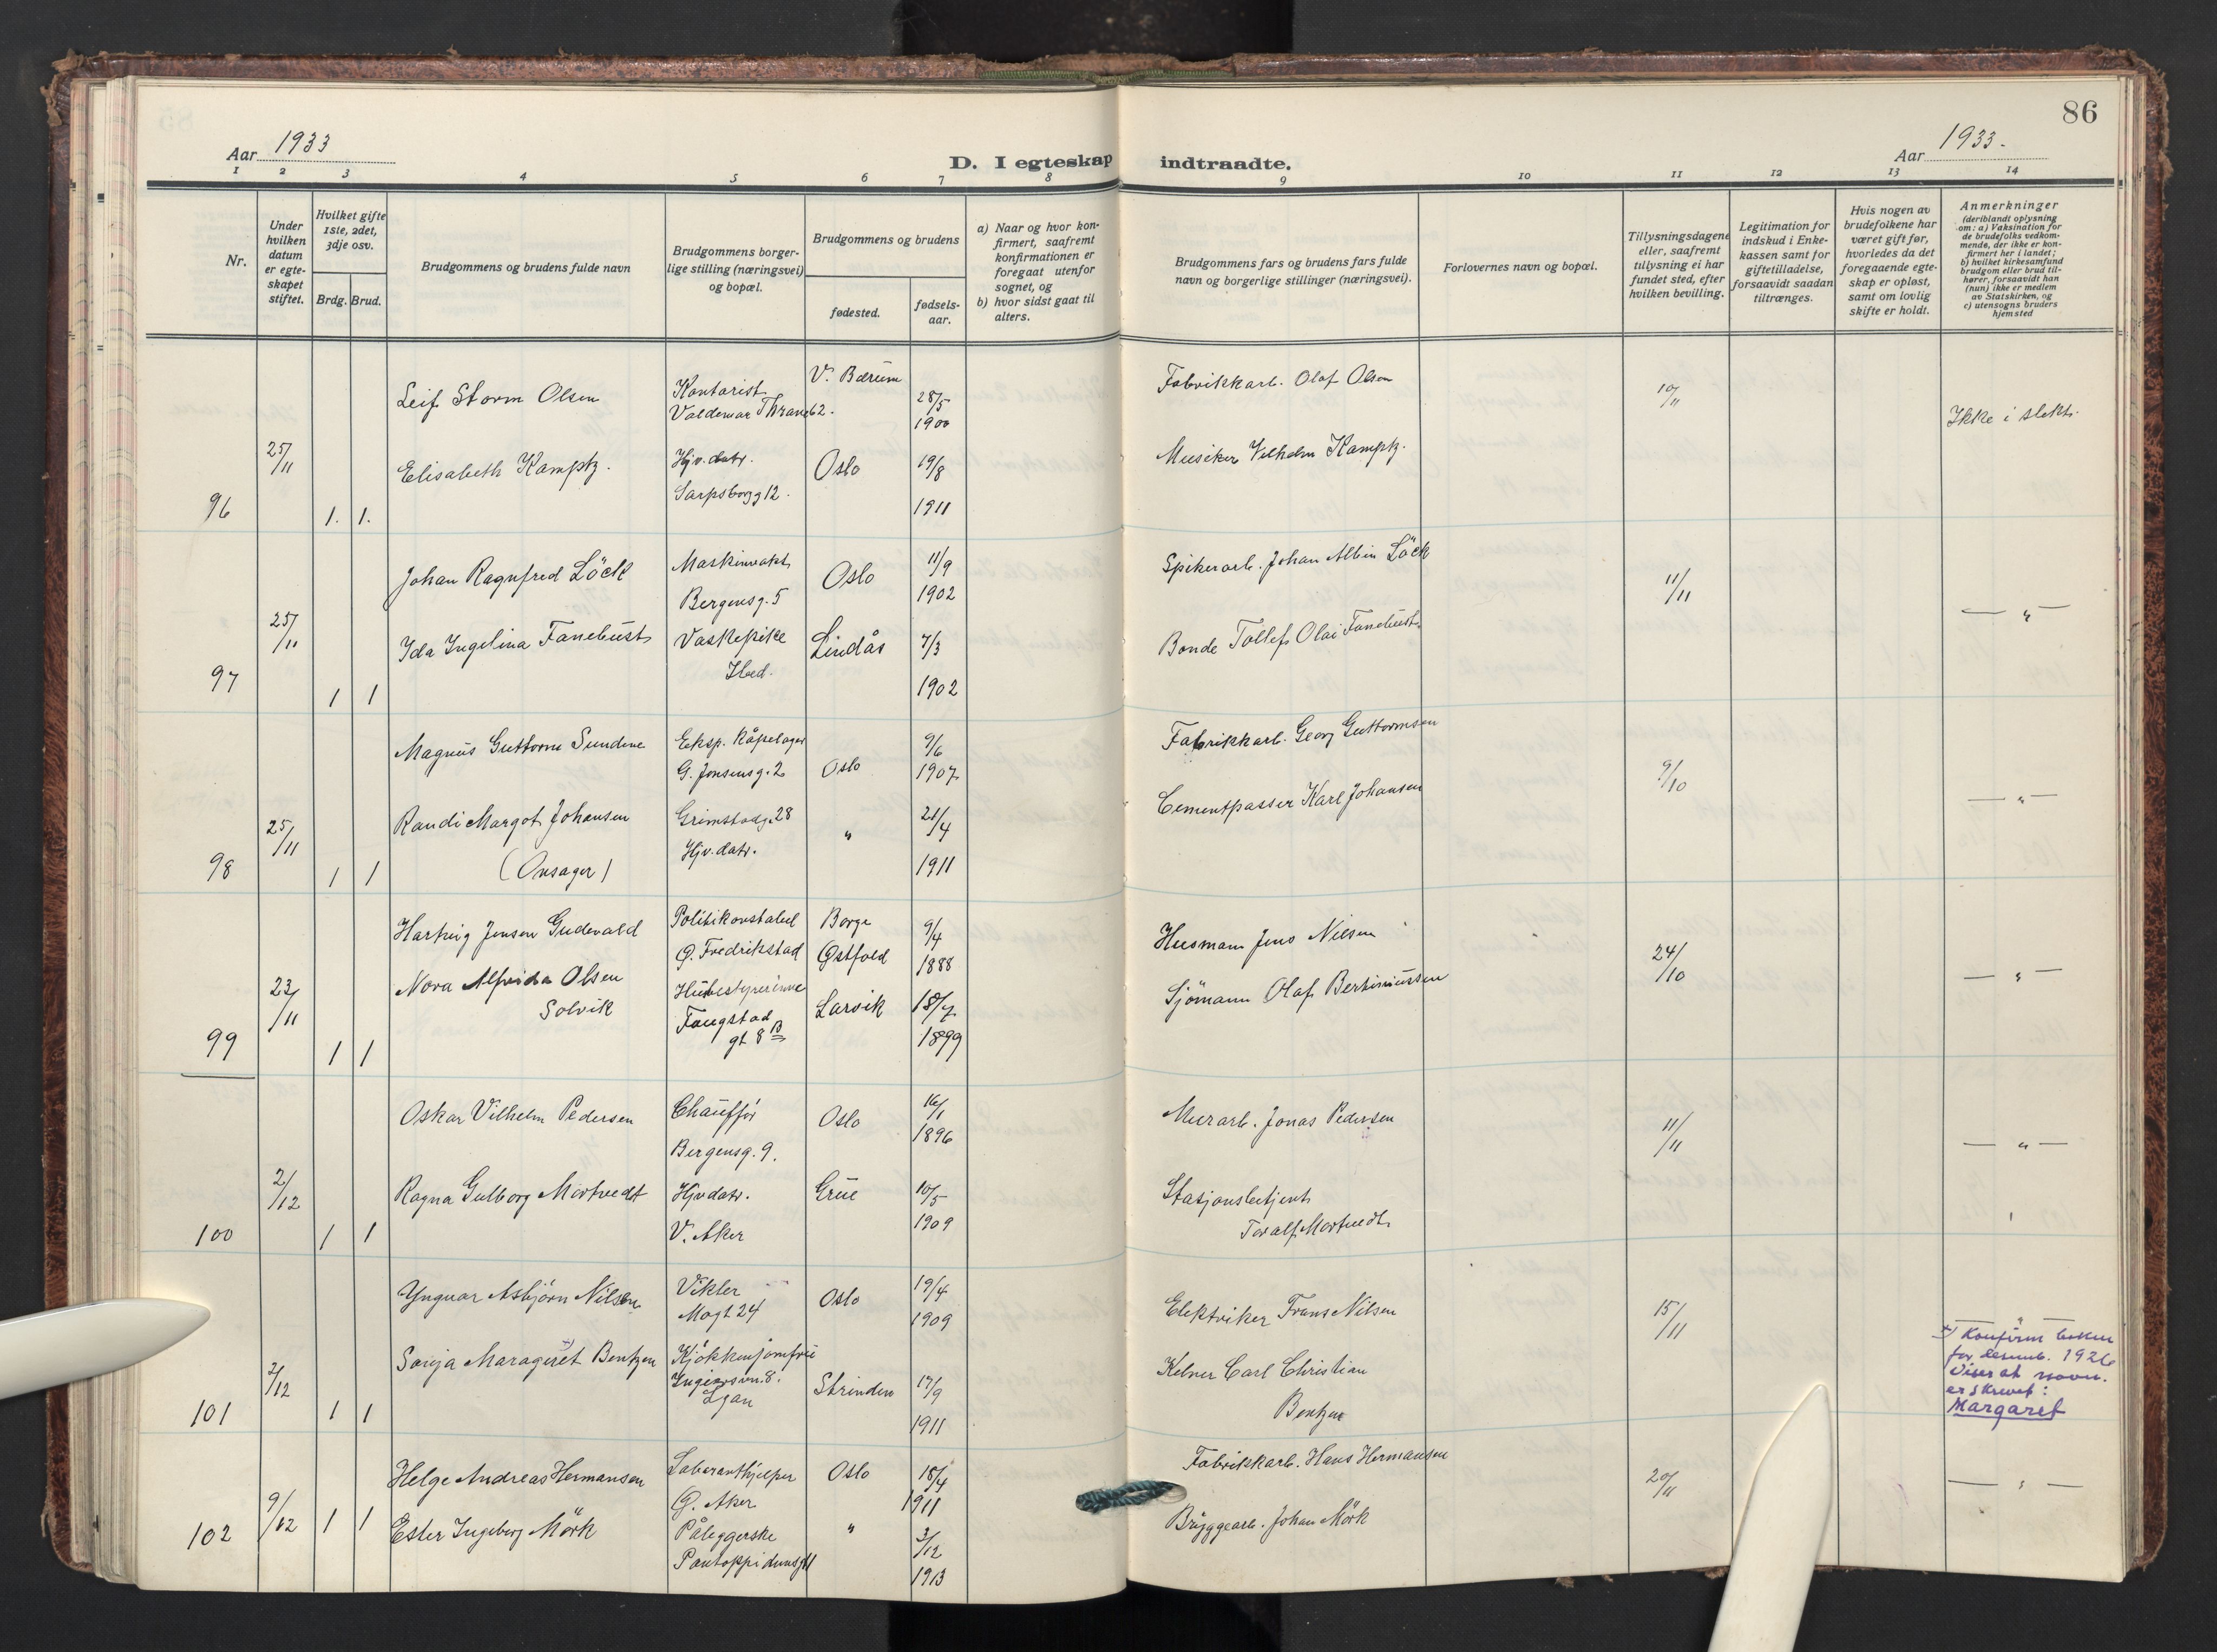 86
Aar 1933
D. I egteskap indtraadte.
Aar 1933.
1 2 3 4 5 6 7 8 9 10 11 12 13 14
Nr.
Under hvilken datum er egteskapet stiftet.
Hvilket gifte 1ste, 2det, 3dje osv.
Brdg. Brud.
Brudgommens og brudens fulde navn
Brudgommens borgerlige stilling (næringsvei) og bopæl.
Brudgommens og brudens
fødested.
fødselsaar.
a) Naar og hvor konfirmert, saafremt konfirmationen er foregaat utenfor sognet, og
b) hvor sidst gaat til alters.
Brudgommens fars og brudens fars fulde navn og borgerlige stillinger (næringsvei).
Forlovernes navn og bopæl.
Tillysningsdagene eller, saafremt tillysning ei har fundet sted, efter hvilken bevilling.
Legitimation for indskud i Enkekassen samt for giftetilladelse, forsaavidt saadan tiltrænges.
Hvis nogen av brudefolkene har været gift før, hvorledes da det foregaaende egteskap er opløst, samt om lovlig skifte er holdt.
Anmerkninger
(deriblandt oplysning om: a) Vaksination for de brudefolks vedkommende, der ikke er konfirmert her i landet; b) hvilket kirkesamfund brudgom eller brud tilhører, forsaavidt han (hun) ikke er medlem av Statskirken, og c) utensogns bruders hjemsted
Leif Storm Olsen
Kontorist
Valdemar Thranes 62.
V. Bærum
28/5
1900
Fabrikkarb. Olaf Olsen
10/11
Ikke i slekt.
96
25/11
1. 1.
Elisabeth Kamptz.
Hjv. datr.
Sarpsborgg 12.
Oslo
19/8
1911
Musiker Vilhelm Kamptz.
Johan Ragnfred Löck
Maskinvakt
Bergensg. 5
Oslo
11/9
1902
Spikerarb. Johan Albin Löck
11/11
— " —
97
25/11
1 1
Ida Ingelina Fanebust
Vaskepike
Ibid.
Lindås
7/3
1902
Bonde Tollef Olai Fanebust
Magnus Guttorm Sundene
Eksp. Kåpelager
G. Jensensg. 2
Oslo
9/6
1907
Fabrikkarb. Georg Guttormsen
9/10
— " —
98
25/11
1 1
Randi Margot Johansen
(Onsager)
Grimstadg. 28
Hjv. datr.
"
21/4
1911
Cementpasser Karl Johansen
Hartvig Jensen Gudevald
Politikonstabel
G. Fredrikstad
Borge
Østfold
9/4
1888
Husmann Jens Nilsen
24/10
— " —
99
23/11
1 1
Nora Alfrida Olsen
Solvik
Husbestyrerinne
Faugstad
gt 8 B
Larvik
18/7
1899
Sjömann Olaf Bertiniussen
Oskar Vilhelm Pedersen
Chauffør
Bergensg. 9.
Oslo
16/1
1896
Murarb. Jonas Pedersen
11/11
— " —
100
2/12
1 1
Ragna Gulborg Mortvedt
Hjv datr.
V. Aker
Grue
10/5
1909
Stasjonsbetjent
Toralf Mortvedt
Yngvar Asbjörn Nilsen
Vikler
Mogt 24
Oslo
19/4
1909
Elektriker Frans Nilsen
15/11
— " —
101
2/12
1 1
Sonja Maragret Bentzen
Kjøkkenjomfru
Strinden
17/9
1911
Kelner Carl Christian
Bentzen
x) Konfirm boken
for desemb. 1926
viser at navn.
er skrevet:
Margaret
Helge Andreas Hermansen
Laboranthjelper
Ø. Aker
Oslo
18/4
1911
Fabrikkarb. Hans Hermansen
20/11
— " —
102
9/12
1 1
Ester Ingeborg Mörk
Påleggerske
Pontoppidansg 11
"
3/12
1913
Bryggearb. Johan Mörk